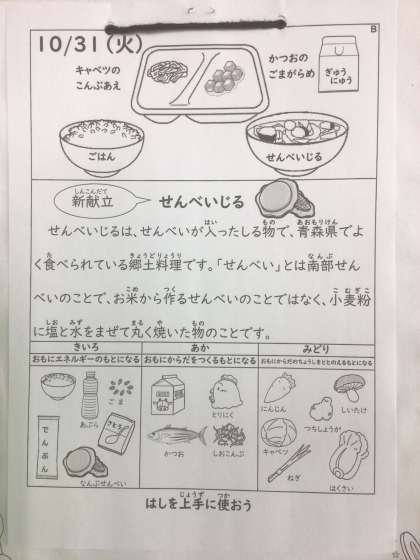 B
10/31(火)
キャベツの
こんぶあえ
かつおの
ごまがらめ
ぎゅう
にゅう
ごはん
せんべいじる
しんこんだて
新献立
せんべいじる
はい もの あおもりけん
せんべいじるは、せんべいが入ったしる物で、青森県でよ
た きょうどりょうり なんぶ
く食べられている郷土料理です。「せんべい」とは南部せん
こめ つく こむぎこ
べいのことで、お米から作るせんべいのことではなく、小麦粉
しお みず まる や もの
に塩と水をまぜて丸く焼いた物のことです。
きいろ あか みどり
おもにエネルギーのもとになる おもにからだをつくるもとになる おもにからだのちょうしをととのえるもとになる
ごま
あぶら
さとう
でんぷん
なんぶせんべい
とりにく
かつお
しおこんぶ
にんじん
しいたけ
つちしょうが
キャベツ
ねぎ
はくさい
じょうず つか
はしを上手に使おう